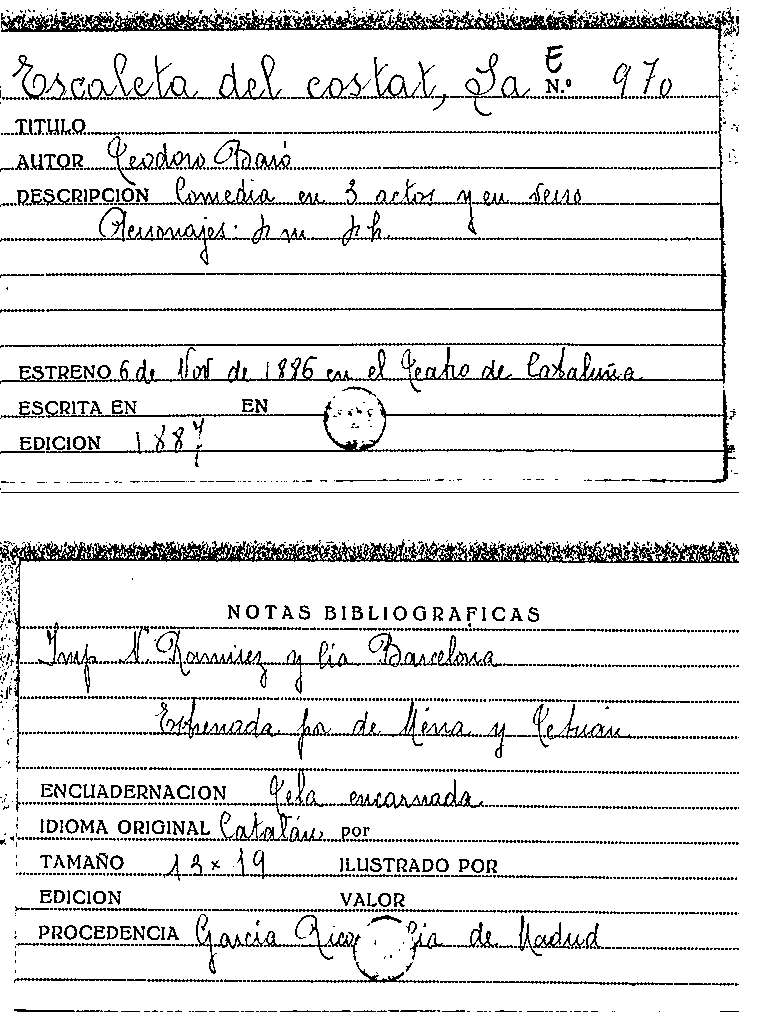 Escaleta del costat, La E N.º 970
TITULO
AUTOR Teodoro Baró
DESCRIPCIÓN Comedia en 3 actos y en verso
Personajes: p m. p h.
ESTRENO 6 de Nov de 1886 en el Teatro de Cataluña
ESCRITA EN EN
EDICION 1887
NOTAS BIBLIOGRAFICAS
Imp N. Ramirez y Cía Barcelona
Estrenada por de Mena y
ENCUADERNACION Tela encarnada
IDIOMA ORIGINAL Catalán por
TAMAÑO 13 x 19 ILUSTRADO POR
EDICION VALOR
PROCEDENCIA García Rico Cía de Madrid